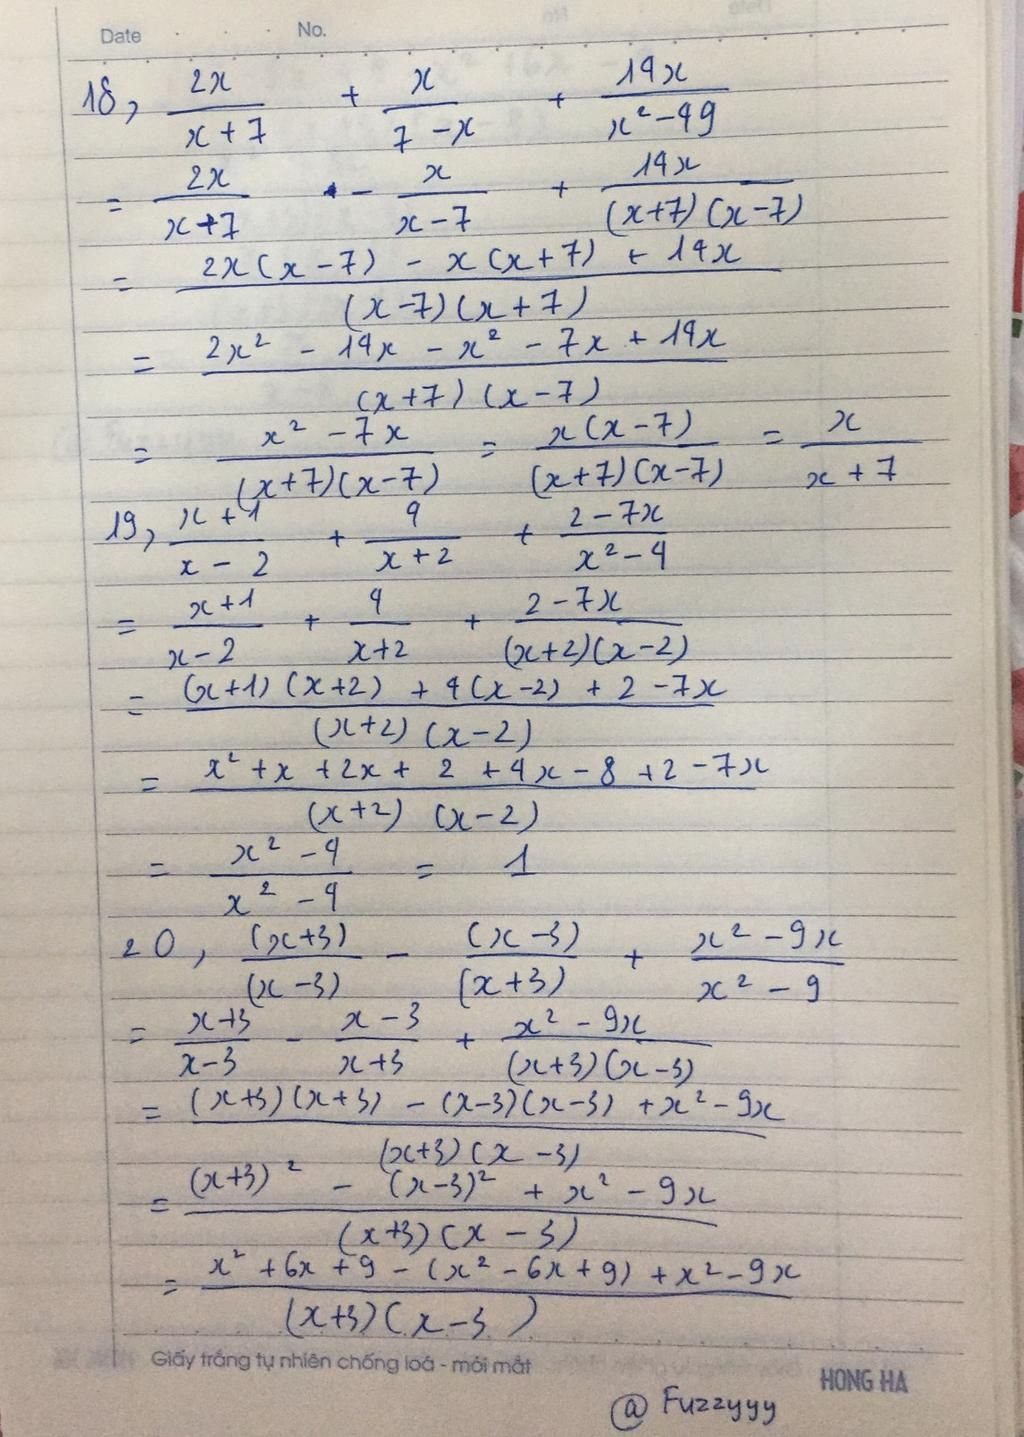 Date No.
18, 2x/(x+7) + x/(7-x) + 14x/(x²-49)
= 2x/(x+7) - x/(x-7) + 14x/((x+7)(x-7))
= (2x(x-7) - x(x+7) + 14x)/((x-7)(x+7))
= (2x² - 14x - x² - 7x + 14x)/((x+7)(x-7))
= (x² - 7x)/((x+7)(x-7)) = x(x-7)/((x+7)(x-7)) = x/(x+7)
19, (x+1)/(x-2) + 4/(x+2) + (2-7x)/(x²-4)
= (x+1)/(x-2) + 4/(x+2) + (2-7x)/((x+2)(x-2))
= ((x+1)(x+2) + 4(x-2) + 2 - 7x)/((x+2)(x-2))
= (x² + x + 2x + 2 + 4x - 8 + 2 - 7x)/((x+2)(x-2))
= (x² - 4)/(x² - 4) = 1
20, (x+3)/(x-3) - (x-3)/(x+3) + (x² - 9x)/(x² - 9)
= (x+3)/(x-3) - (x-3)/(x+3) + (x² - 9x)/((x+3)(x-3))
= ((x+3)(x+3) - (x-3)(x-3) + x² - 9x)/((x+3)(x-3))
= ((x+3)² - (x-3)² + x² - 9x)/((x+3)(x-3))
= (x² + 6x + 9 - (x² - 6x + 9) + x² - 9x)/((x+3)(x-3))
Giấy trắng tự nhiên chống loá - mỏi mắt
HONG HA
@ Fuzzyyy